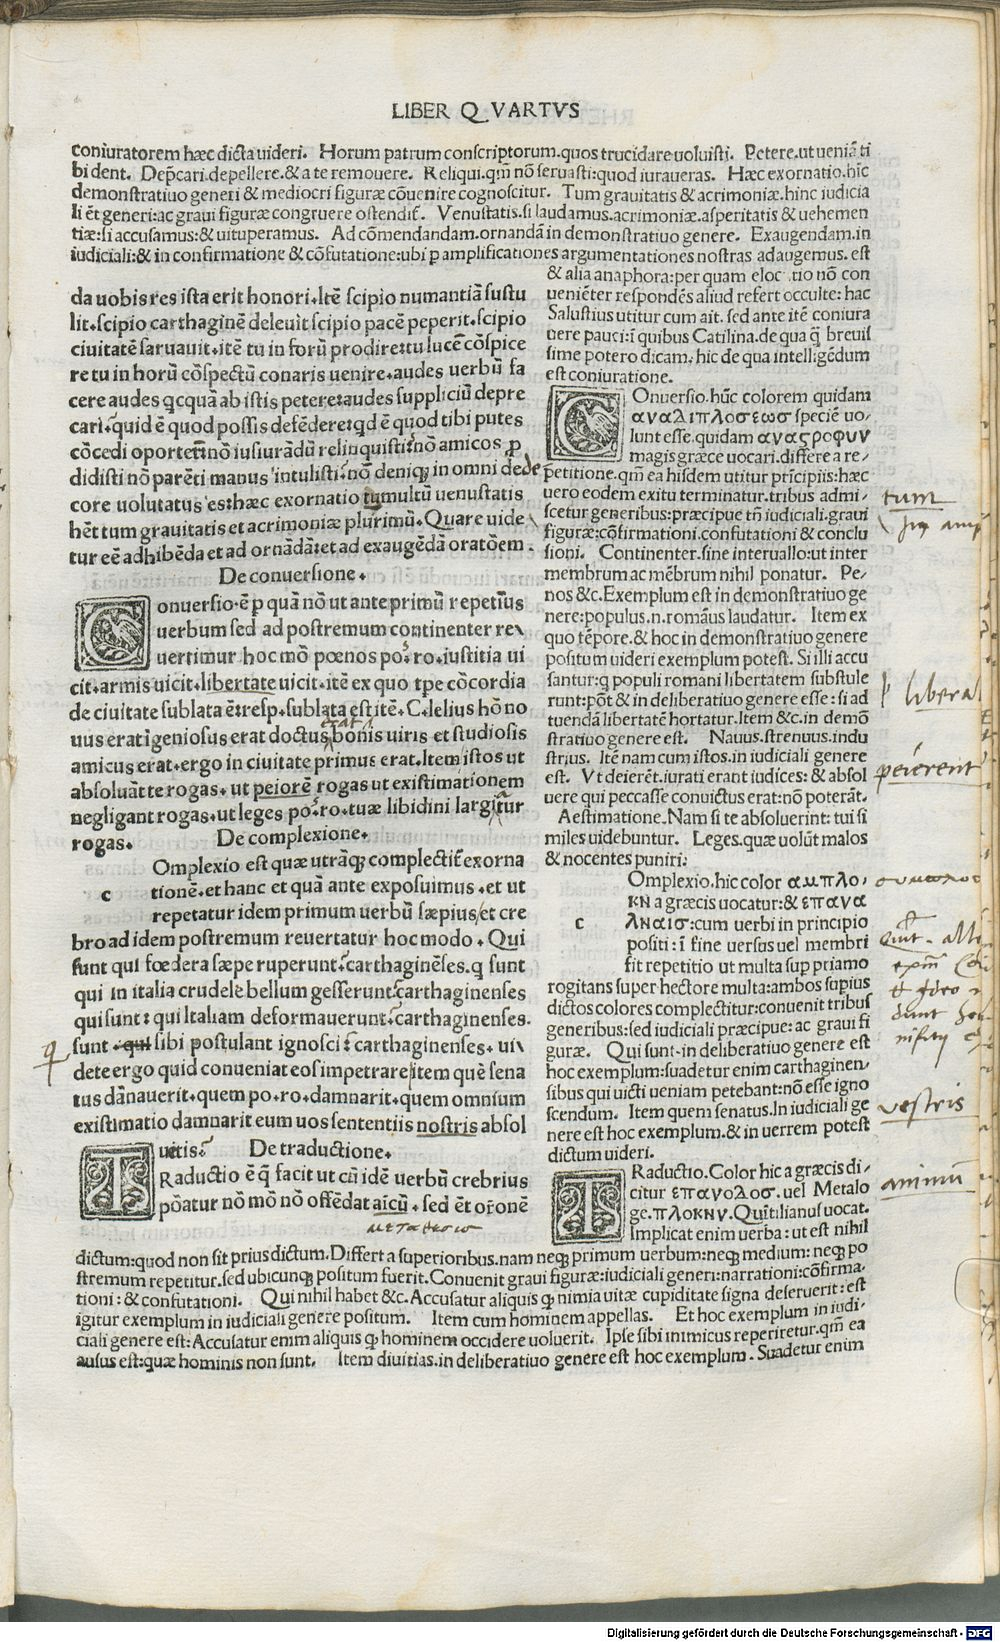 LIBER QVARTVS
coniuratorem hæc dicta uideri. Horum patrum conscriptorum.quos trucidare uoluisti. Petere.ut ueniã ti
bi dent. Dep̃cari.depellere.& a te remouere. Reliqui.qm̃ nõ seruasti:quod iuraueras. Hæc exornatio.hic
demonstratiuo generi & mediocri figuræ cõuenire cognoscitur. Tum grauitatis & acrimoniæ.hinc iudicia
li ẽt generi:ac graui figuræ congruere ostendit̃. Venustatis.si laudamus.acrimoniæ.asperitatis & uehemen
tiæ:si accusamus:& uituperamus. Ad cõmendandam.ornandã in demonstratiuo genere. Exaugendam.in
iudiciali:& in confirmatione & cõfutatione:ubi p amplificationes argumentationes nostras adaugemus. est
da uobis res ista erit honori.Itẽ scipio numantiã sustu
lit.scipio carthaginẽ deleuit scipio pacẽ peperit.scipio
ciuitatẽ saruauit.itẽ tu in forũ prodire:tu lucẽ cõspice
re tu in horũ cõspectũ conaris uenire.audes uerbũ fa
cere audes qcquã ab istis petere:audes suppliciũ depre
cari.quid ẽ quod possis defẽdere:qd ẽ quod tibi putes
cõcedi oportere:nõ iusiurãdũ relinquisti:nõ amicos p
didisti nõ parẽti manus intulisti:nõ deniq; in omni dede
core uolutatus es:hæc exornatio tumultũ uenustatis
hẽt tum grauitatis et acrimoniæ plurimũ.Quare uide
tur eẽ adhibẽda et ad ornãdã:et ad exaugẽdã oratõem.
De conuersione.
Conuersio.ẽ p quã nõ ut ante primũ repetim̃us
uerbum sed ad postremum continenter re
uertimur hoc mõ pœnos po.ro.iustitia ui
cit.armis uicit.libertate uicit.itẽ ex quo tp̃e cõcordia
de ciuitate sublata ẽ:resp.sublata est itẽ.C.lelius hõ no
uus erat
erat igeniosus erat doctus bonis uiris et studiosis
amicus erat.ergo in ciuitate primus erat.Item istos ut
absoluãt te rogas.ut peiorẽ rogas ut existimationem
negligant rogas.ut leges po.ro.tuæ libidini largitur
rogas.
De complexione.
c Omplexio est quæ utrãq; complectit̃ exorna
tionẽ.et hanc et quã ante exposuimus.et ut
repetatur idem primum uerbũ sæpius et cre
bro ad idem postremum reuertatur hoc modo. Qui
sunt qui fœdera sæpe ruperunt:carthaginẽses.q sunt
qui in italia crudele bellum gesserunt:carthaginenses
qui sunt: qui Italiam deformauerunt:carthaginenses.
sunt qui sibi postulant ignosci: carthaginenses. ui
q
dete ergo quid conueniat eos impetrare item quẽ sena
tus dãnauerit.quem po.ro.damnarit.quem omnium
existimatio damnarit eum uos sententiis nostris absol
uetis: De traductione.
TRaductio ẽ q̃ facit ut cũ idẽ uerbũ crebrius
põatur nõ mõ nõ offẽdat aicũ. sed ẽt orõnẽ
μεταθεσις
& alia anaphora:per quam elocutio nõ con
ueniẽter respondẽs aliud refert occulte: hac
Salustius utitur cum ait. sed ante itẽ coniura
uere pauci:ĩ quibus Catilina.de qua q̃ breuis
sime potero dicam. hic de qua intelligẽdum
est coniuratione.
COnuersio.hũc colorem quidam
αναλιπλοσεωσ speciẽ uo/
lunt esse.quidam αναςροφυν
magis græce uocari.differe a re/
petitione.qm̃ ea hisdem utitur prĩcipiis:hæc
uero eodem exitu terminatur.tribus admi/
scetur generibus:præcipue tñ iudiciali.graui
figuræ:cõfirmationi.confutationi & conclu
sioni. Continenter.sine interuallo:ut inter
membrum ac mẽbrum nihil ponatur. Pe/
nos &c.Exemplum est in demonstratiuo ge
nere:populus.n.romãus laudatur. Item ex
quo tẽpore.& hoc in demonstratiuo genere
positum uideri exemplum potest. Si illi accu
santur:q populi romani libertatem substule
runt:põt & in deliberatiuo genere esse: si ad
tuendã libertatẽ hortatur.Item &c.in demõ
stratiuo genere est. Nauus.strenuus.indu
strius. Itẽ nam cum istos.in iudiciali genere
est. Vt deierẽt.iurati erant iudices: & absol
uere qui peccasse conuictus erat:nõ poterãt.
Aestimatione.Nam si te absoluerint: tui si
miles uidebuntur. Leges.quæ uolũt malos
& nocentes puniri:
c Omplexio.hic color αμπλο.
κη a græcis uocatur:& επανα
λναισ:cum uerbi in principio
positi: ĩ fine uersus uel membri
fit repetitio ut multa sup priamo
rogitans super hectore multa:ambos supius
dictos colores complectitur:conuenit tribus
generibus:sed iudiciali præcipue: ac graui fi
guræ. Qui sunt.in deliberatiuo genere est
hoc exemplum:suadetur enim carthaginen/
sibus qui uicti ueniam petebant:nõ esse igno
scendum. Item quem senatus.In iudiciali ge
nere est hoc exemplum.& in uerrem potest
dictum uideri.
TRaductio.Color hic a græcis di/
citur επανολοσ.uel Metalo
ge.πλοκην.Quĩtilianus uocat.
Implicat enim uerba: ut est nihil
dictum:quod non sit prius dictum.Differt a superioribus.nam neq; primum uerbum:neq; medium: neq; po
stremum repetitur.sed ubicunq; positum fuerit.Conuenit graui figuræ:iudiciali generi:narrationi:cõfirma.
tioni: & confutationi. Qui nihil habet &c.Accusatur aliquis q nimia uitæ cupiditate signa deseruerit: est
igitur exemplum in iudiciali genere positum. Item cum hominem appellas. Et hoc exemplum in iudi-
ciali genere est: Accusatur enim aliquis q hominem occidere uoluerit. Ipse sibi inimicus reperiretur.qm̃ ea
ausus est:quæ hominis non sunt. Item diuitias.in deliberatiuo genere est hoc exemplum. Suadetur enim
tum
libera
peierent
vestris
animũ
Digitalisierung gefördert durch die Deutsche Forschungsgemeinschaft - DFG